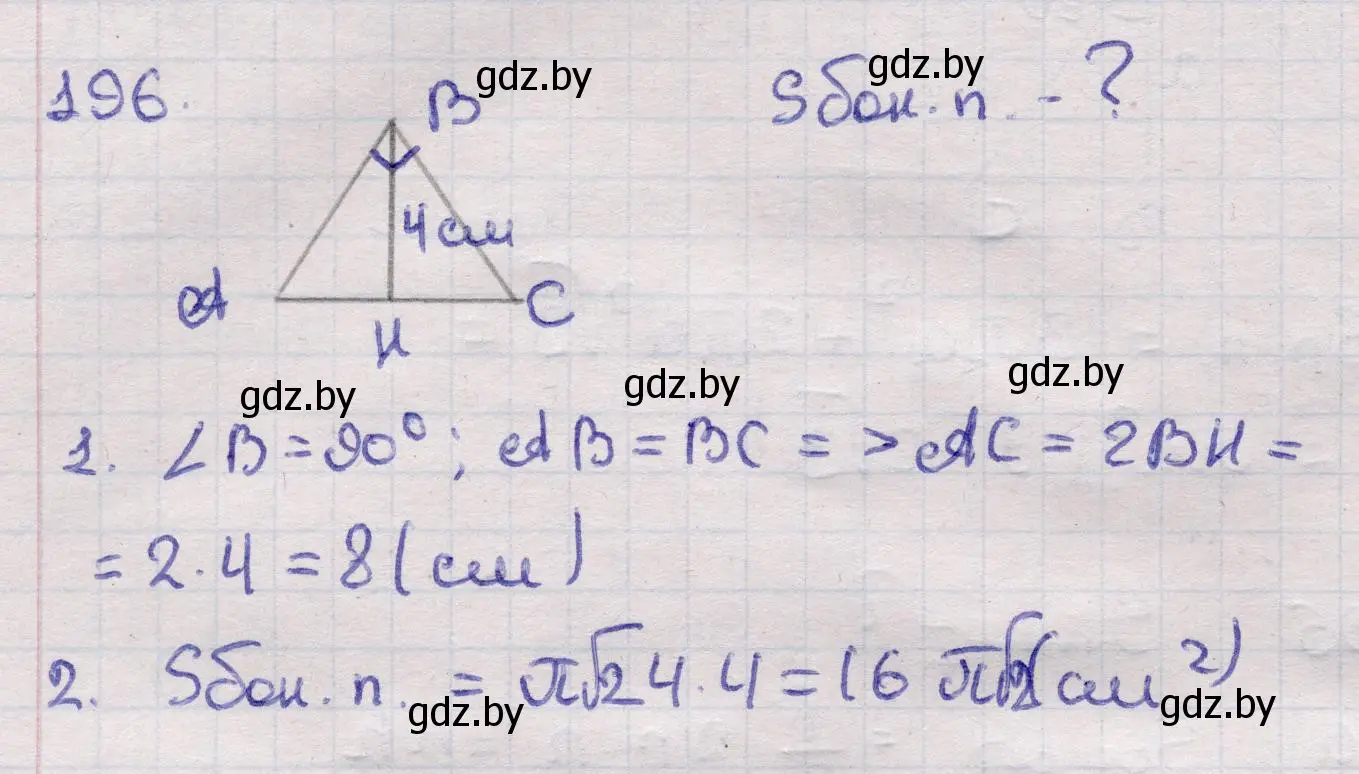 196.
gdz.by
B
4 см
A
H
C
gdz.by
Sбок. п. - ?
gdz.by
gdz.by
gdz.by
1. ∠B = 90°; AB = BC => AC = 2BH =
= 2 · 4 = 8 (см)
2. Sбок. п. = π√2 4 · 4 = 16 π√2 (см²)
gdz.by
gdz.by